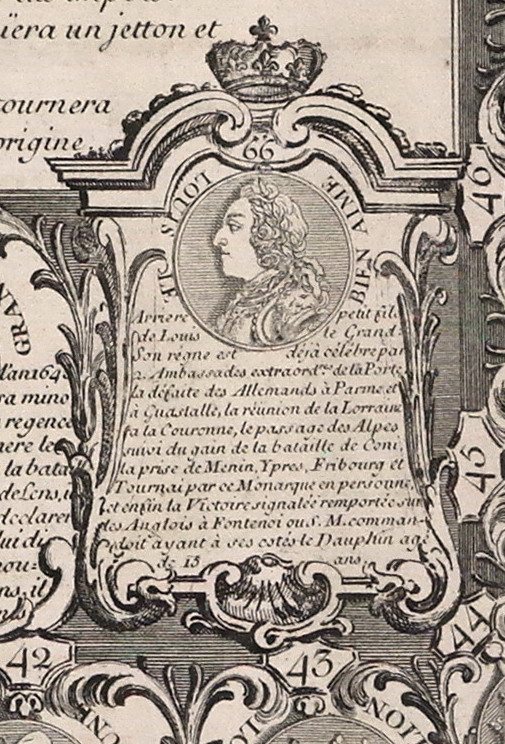 iera un jetton et
tournera
origine
66
ET LOUIS BIEN AIMÉ
Arriere petit fils
de Louis le Grand
Son règne est déjà célèbre par
2. Ambassades extraord.res de la Porte
la défaite des Allemands à Parme et
à Guastalle, la réunion de la Lorraine
a la Couronne, le passage des Alpes
suivi du gain de la bataille de Coni
la prise de Menin, Ypres, Fribourg et
Tournai par ce Monarque en personne
et enfin la Victoire signalée remportée sur
les Anglois à Fontenoi ou S. M. comman-
doit ayant à ses costés le Dauphin agé
de 15 ans
GRAN
l'an 164
sa mino
regence
nere le
la bata
de Lens, i
declarer
lui du
pou=
ns, il
46
45
44
42
43
LION